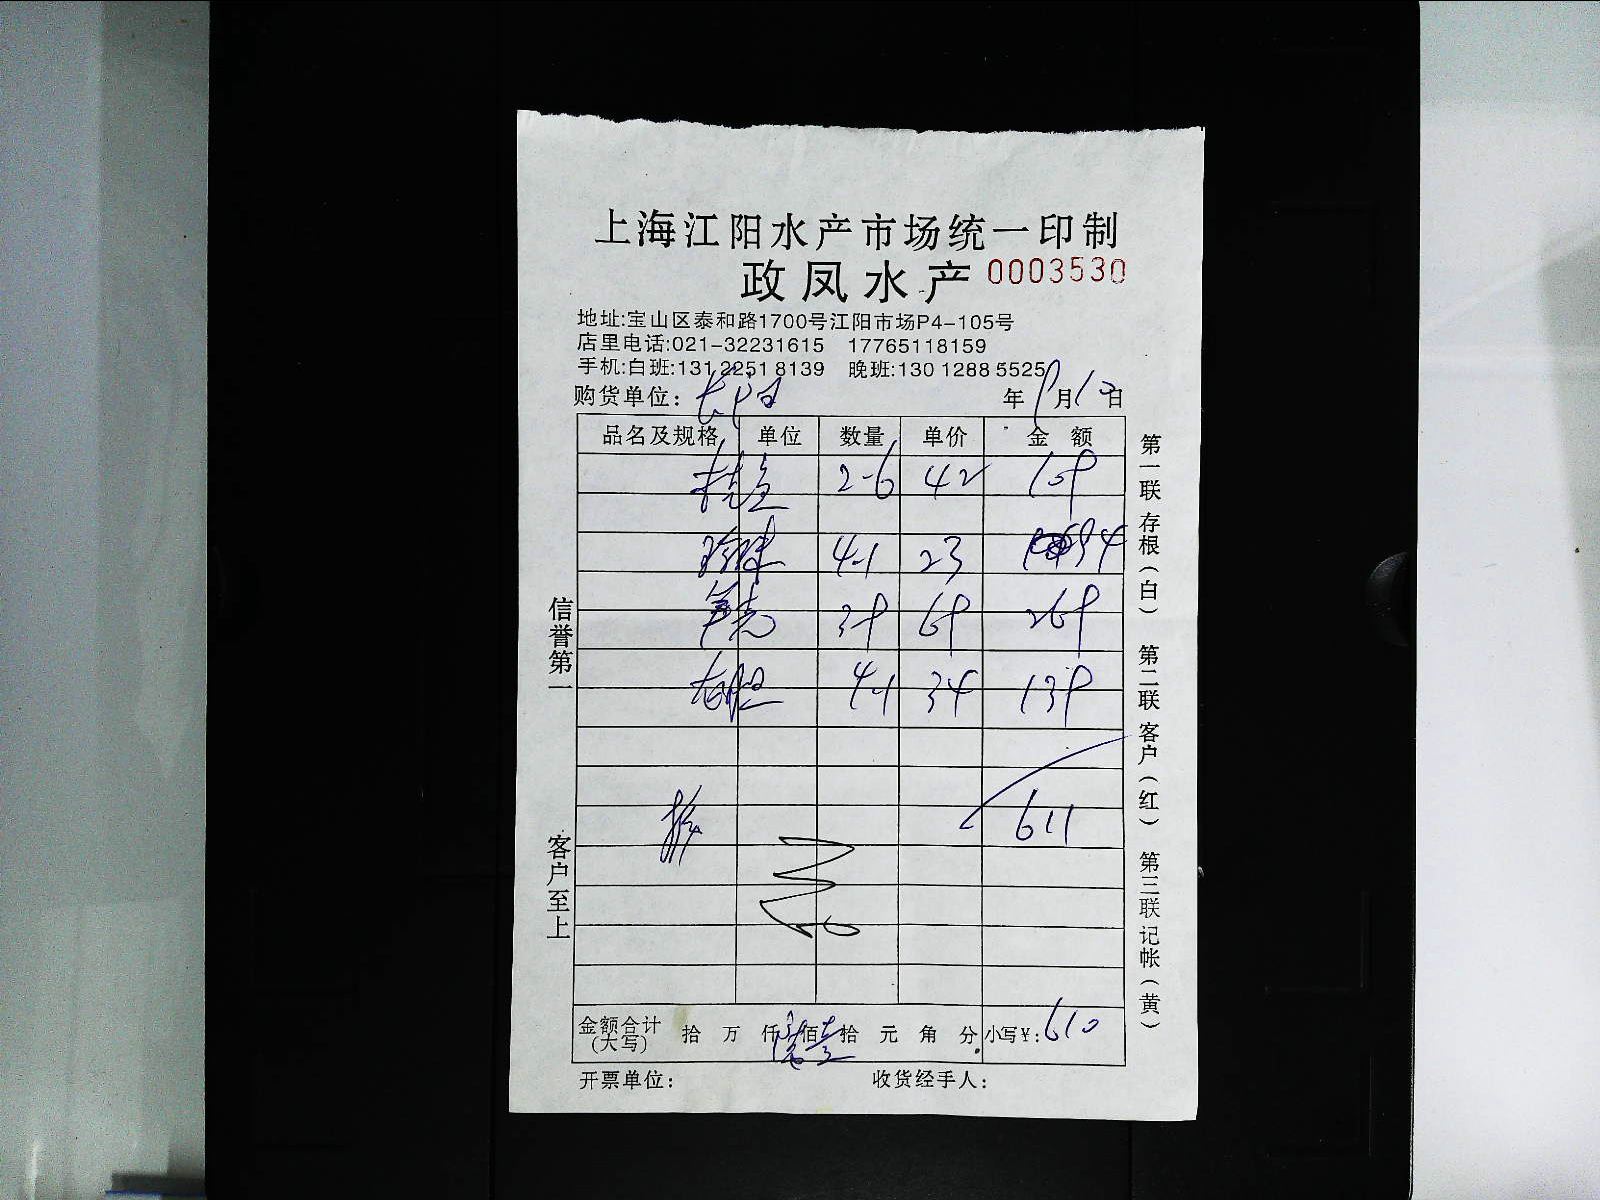 上海江阳水产市场统一印制
政凤水产 0003530
地址:宝山区泰和路1700号江阳市场P4-105号
店里电话:021-32231615 17765118159
手机:白班:131 2251 8139 晚班:130 1288 5525
购货单位: 年 9月10日
品名及规格 单位 数量 单价 金额
桂鱼 2-6 42 109
4-1 23 94
39 69 269
4-1 34 139
611
金额合计(大写) 拾 万 仟 陆佰 壹拾 元 角 分 小写¥:610
开票单位: 收货经手人:
信誉第一
客户至上
第一联存根(白) 第二联客户(红) 第三联记帐(黄)